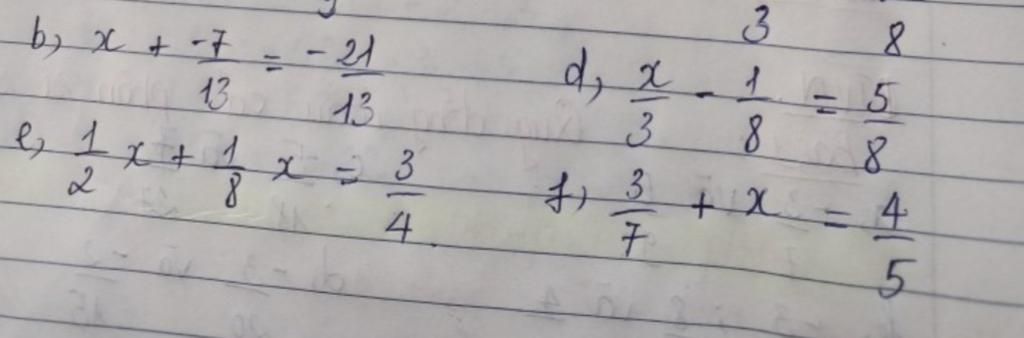 3 8
b, x + -7/13 = -21/13
d, x/3 - 1/8 = 5/8
e, 1/2 x + 1/8 x = 3/4
f, 3/7 + x = 4/5